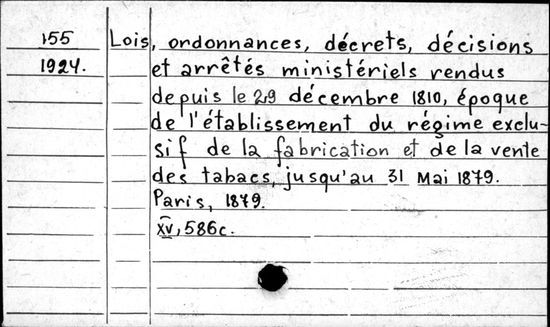 155 Lois, ordonnances, décrets, décisions
1924. et arrêtés ministériels rendus
depuis le 29 décembre 1810, époque
de l'établissement du régime exclu-
sif de la fabrication et de la vente
des tabacs, jusqu'au 31 Mai 1879.
Paris, 1879.
XV, 586c.